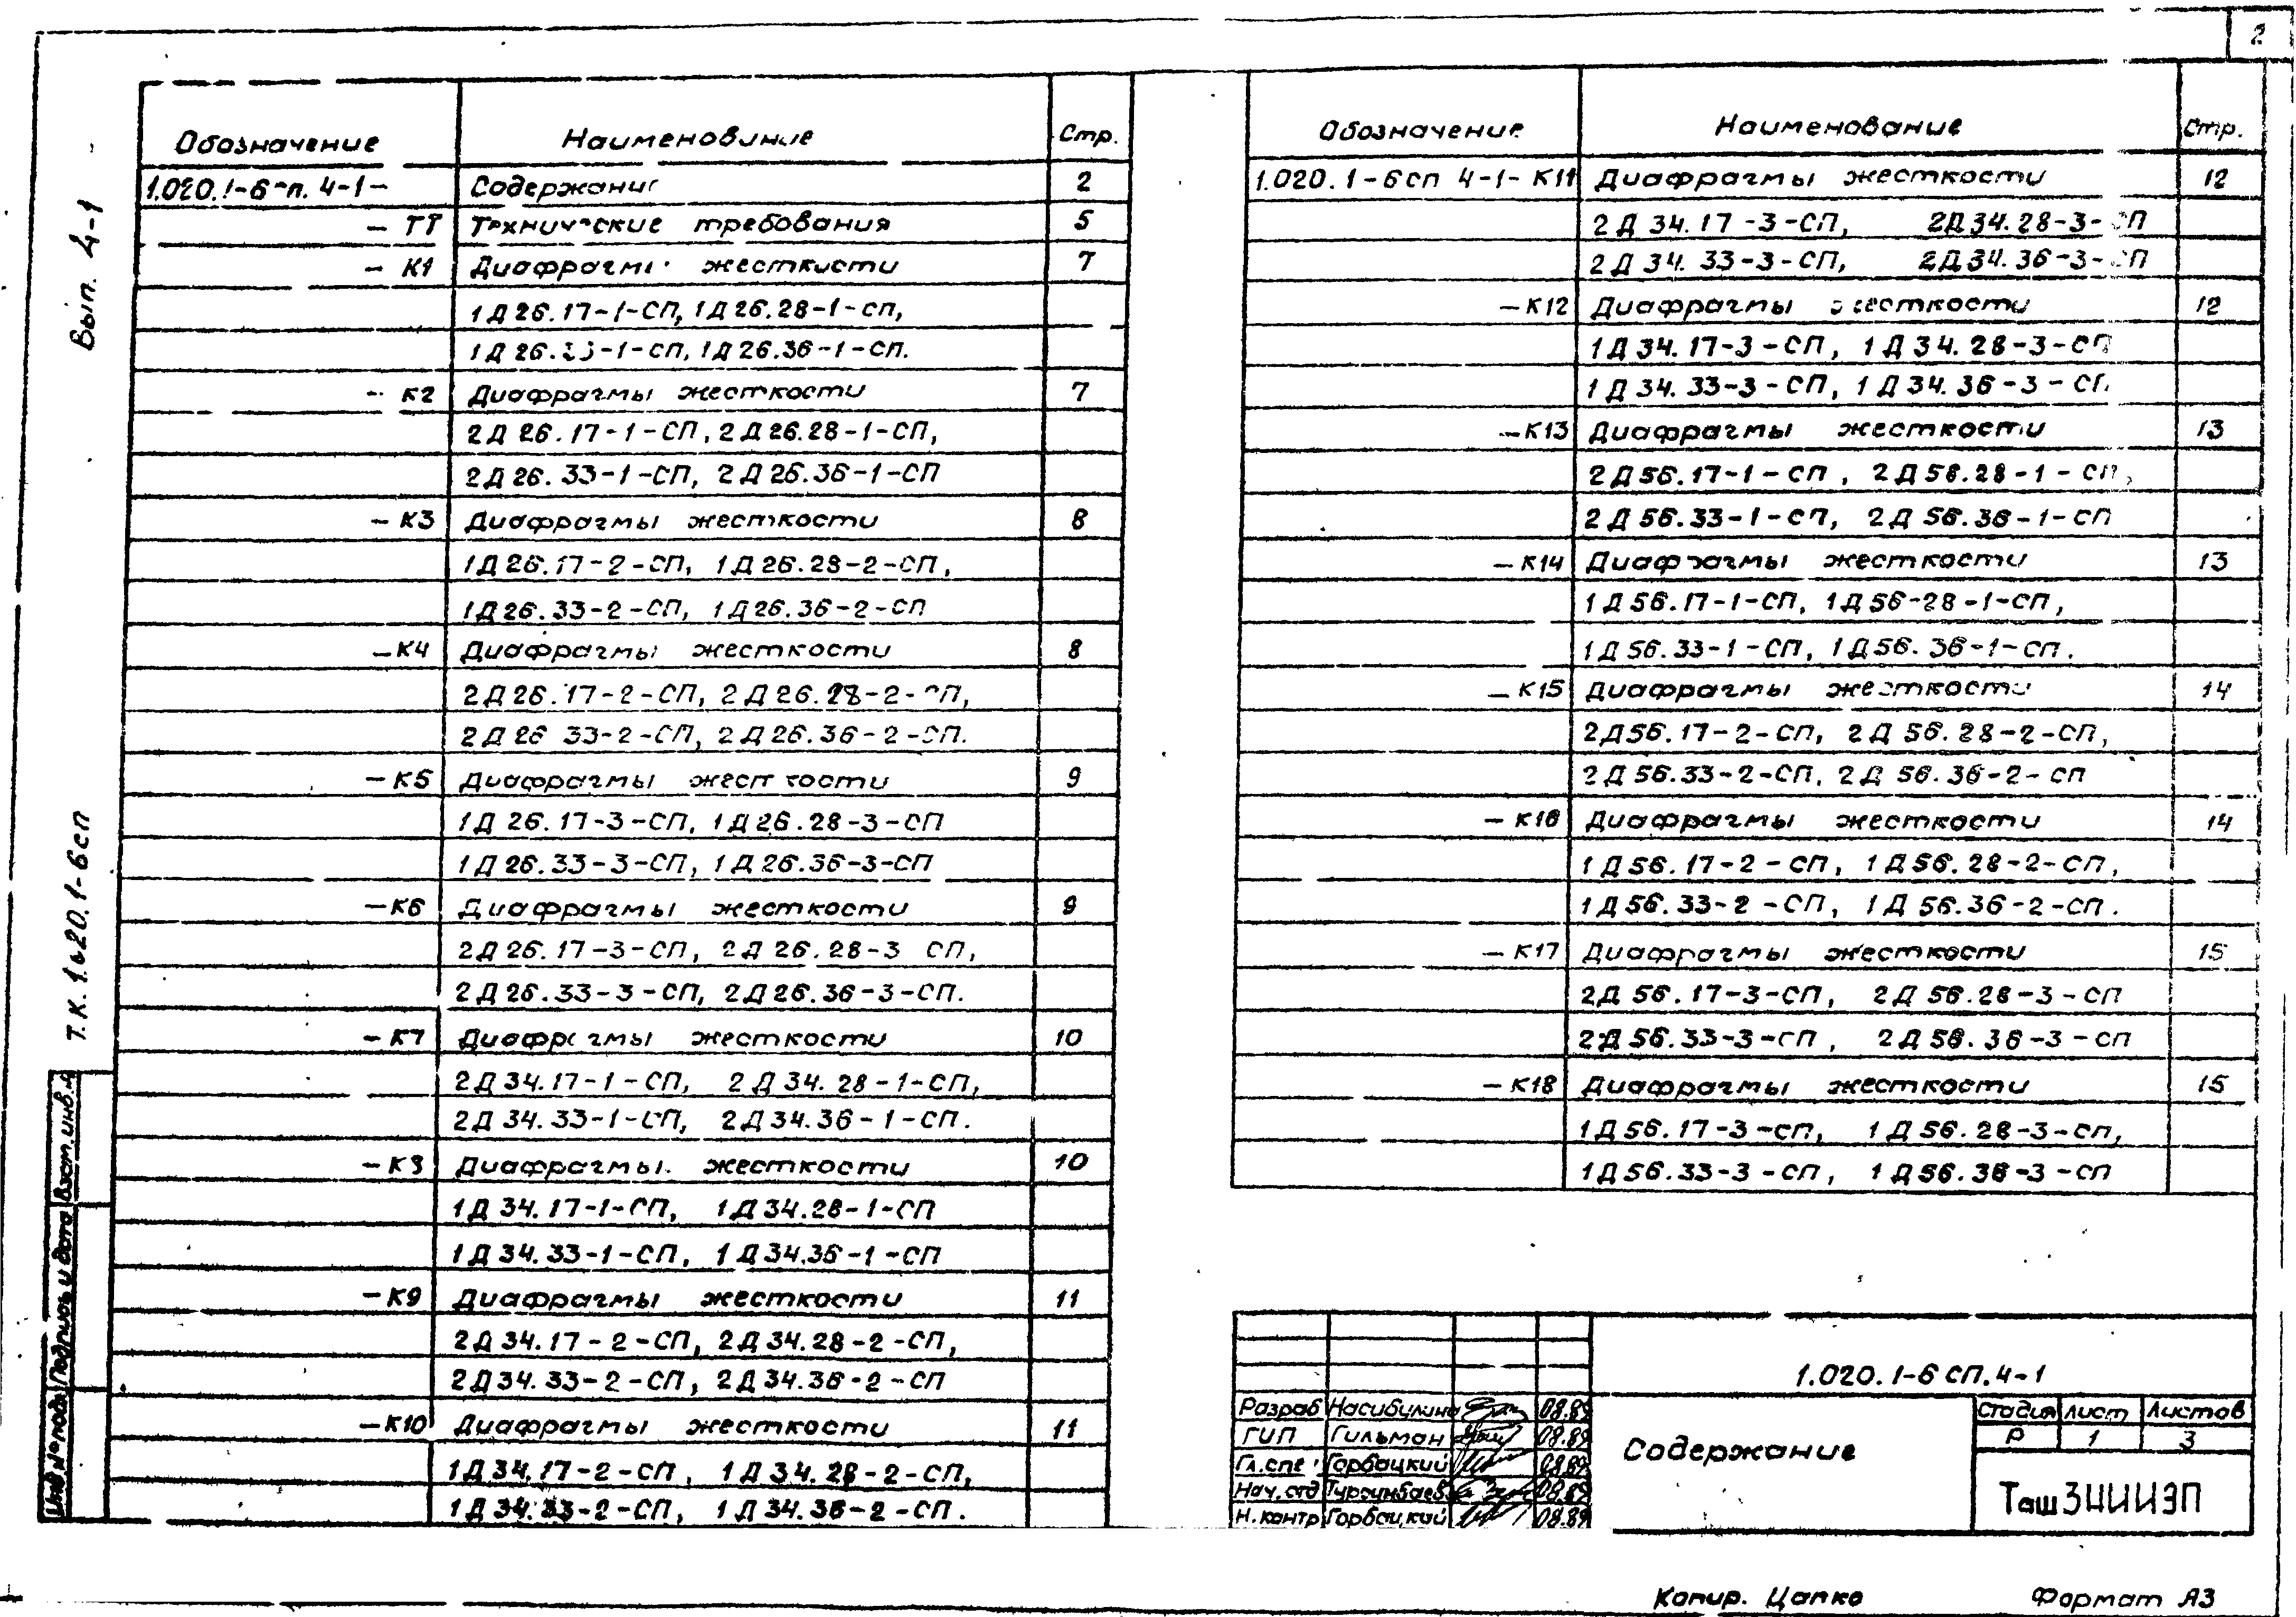 2
Вып. 4-1
Т.К. 1.020.1-6сп
Взам.инв.№
Подпись и дата
Инв № подл
Обозначение Наименование Стр.
1.020.1-6сп. 4-1- Содержание 2
- ТТ Технические требования 5
- К1 Диафрагмы жесткости 7
1Д26.17-1-СП, 1Д26.28-1-СП,
1Д26.33-1-СП, 1Д26.36-1-СП.
- К2 Диафрагмы жесткости 7
2Д26.17-1-СП, 2Д26.28-1-СП,
2Д26.33-1-СП, 2Д26.36-1-СП
- К3 Диафрагмы жесткости 8
1Д26.17-2-СП, 1Д26.28-2-СП,
1Д26.33-2-СП, 1Д26.36-2-СП
- К4 Диафрагмы жесткости 8
2Д26.17-2-СП, 2Д26.28-2-СП,
2Д26 33-2-СП, 2Д26.36-2-СП.
- К5 Диафрагмы жесткости 9
1Д26.17-3-СП, 1Д26.28-3-СП
1Д26.33-3-СП, 1Д26.36-3-СП
- К6 Диафрагмы жесткости 9
2Д26.17-3-СП, 2Д26.28-3 СП,
2Д26.33-3-СП, 2Д26.36-3-СП.
- К7 Диафрагмы жесткости 10
2Д34.17-1-СП, 2Д34.28-1-СП,
2Д34.33-1-СП, 2Д34.36-1-СП.
- К8 Диафрагмы жесткости 10
1Д34.17-1-СП, 1Д34.28-1-СП
1Д34.33-1-СП, 1Д34.36-1-СП
- К9 Диафрагмы жесткости 11
2Д34.17-2-СП, 2Д34.28-2-СП,
2Д34.33-2-СП, 2Д34.36-2-СП
- К10 Диафрагмы жесткости 11
1Д34.17-2-СП, 1Д34.28-2-СП,
1Д34.33-2-СП, 1Д34.36-2-СП.
Обозначение Наименование Стр.
1.020.1-6сп 4-1- К11 Диафрагмы жесткости 12
2Д34.17-3-СП, 2Д34.28-3-СП
2Д34.33-3-СП, 2Д34.36-3-СП
- К12 Диафрагмы жесткости 12
1Д34.17-3-СП, 1Д34.28-3-СП
1Д34.33-3-СП, 1Д34.36-3-СП
- К13 Диафрагмы жесткости 13
2Д56.17-1-СП, 2Д56.28-1-СП,
2Д56.33-1-СП, 2Д56.36-1-СП
- К14 Диафрагмы жесткости 13
1Д56.17-1-СП, 1Д56-28-1-СП,
1Д56.33-1-СП, 1Д56.36-1-СП.
- К15 Диафрагмы жесткости 14
2Д56.17-2-СП, 2Д56.28-2-СП,
2Д56.33-2-СП, 2Д56.36-2-СП
- К16 Диафрагмы жесткости 14
1Д56.17-2-СП, 1Д56.28-2-СП,
1Д56.33-2-СП, 1Д56.36-2-СП.
- К17 Диафрагмы жесткости 15
2Д56.17-3-СП, 2Д56.28-3-СП
2Д56.33-3-СП, 2Д56.36-3-СП
- К18 Диафрагмы жесткости 15
1Д56.17-3-СП, 1Д56.28-3-СП,
1Д56.33-3-СП, 1Д56.36-3-СП
1.020.1-6 СП.4-1
Разраб Насибулина 08.89
ГИП Гильман 08.89
Гл.спец Горбацкий 08.89
Нач.отд Турсунбаев 08.89
Н.контр Горбацкий 08.89
Содержание
Стадия Лист Листов
Р 1 3
ТашЗНИИЭП
Копир. Цапко Формат А3